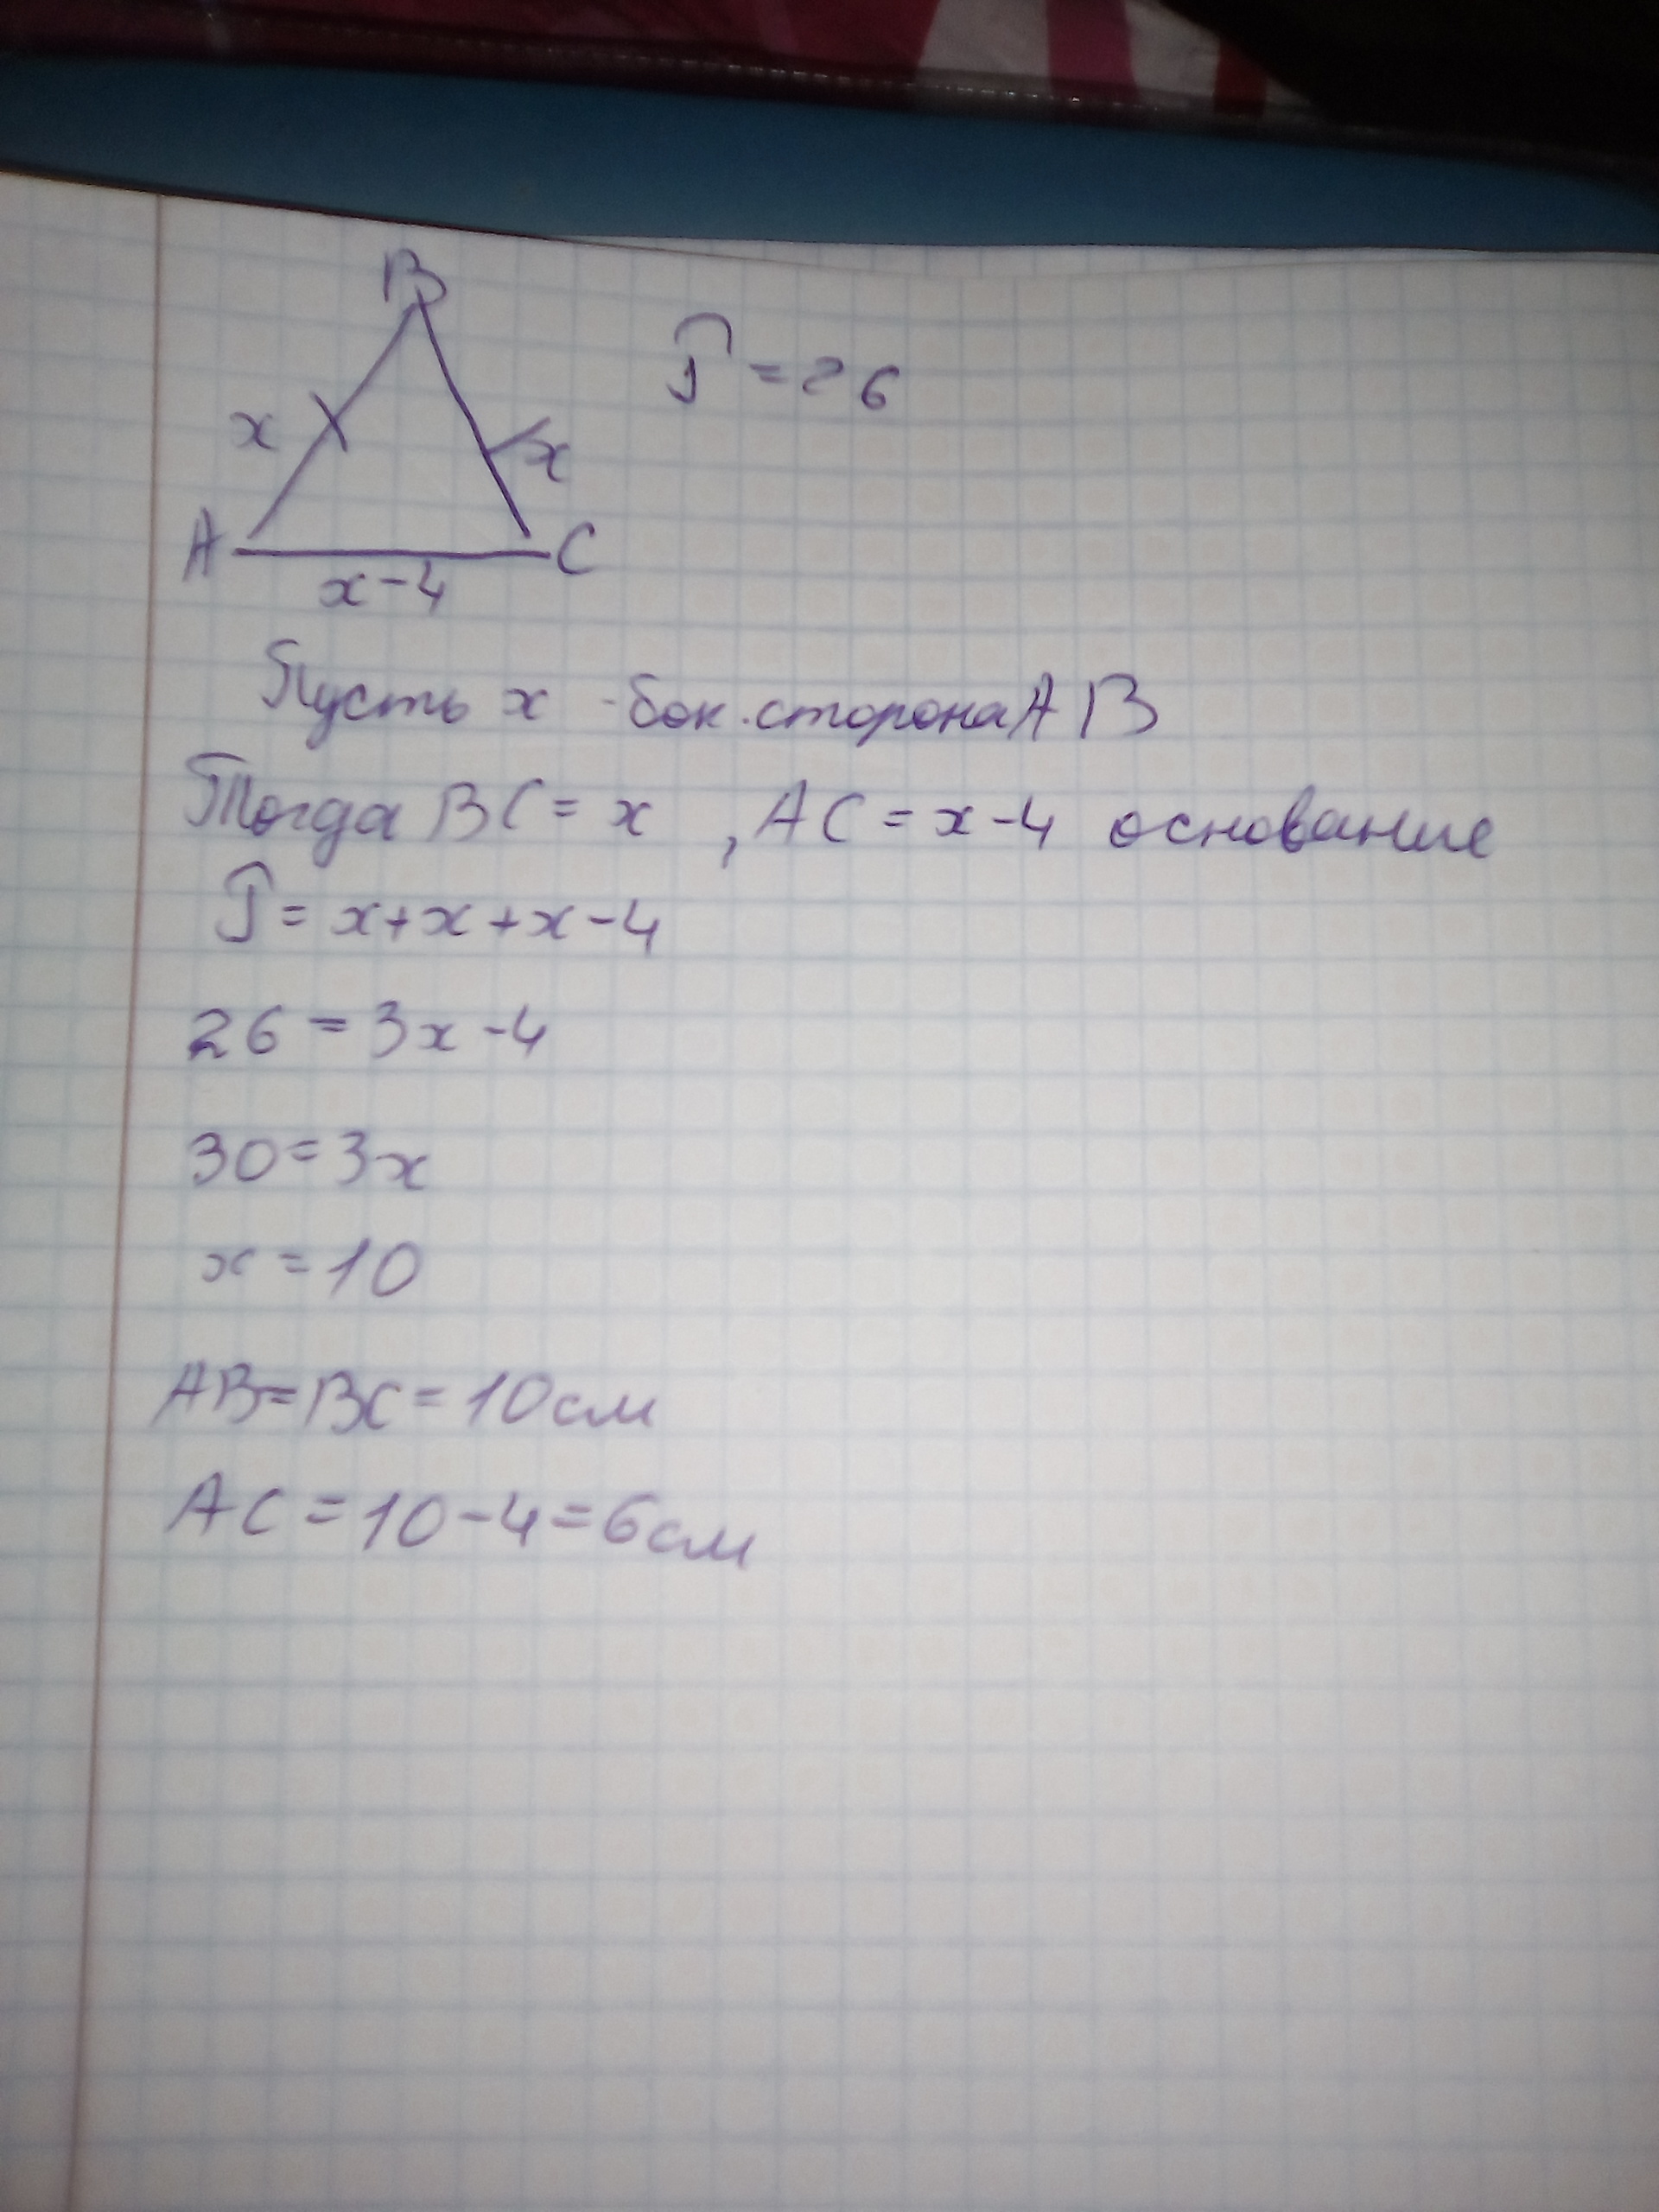 B
P = 26
x
x
A
C
x - 4
Пусть x - бок. сторона AB
Тогда BC = x , AC = x - 4 основание
P = x + x + x - 4
26 = 3x - 4
30 = 3x
x = 10
AB = BC = 10 см
AC = 10 - 4 = 6 см